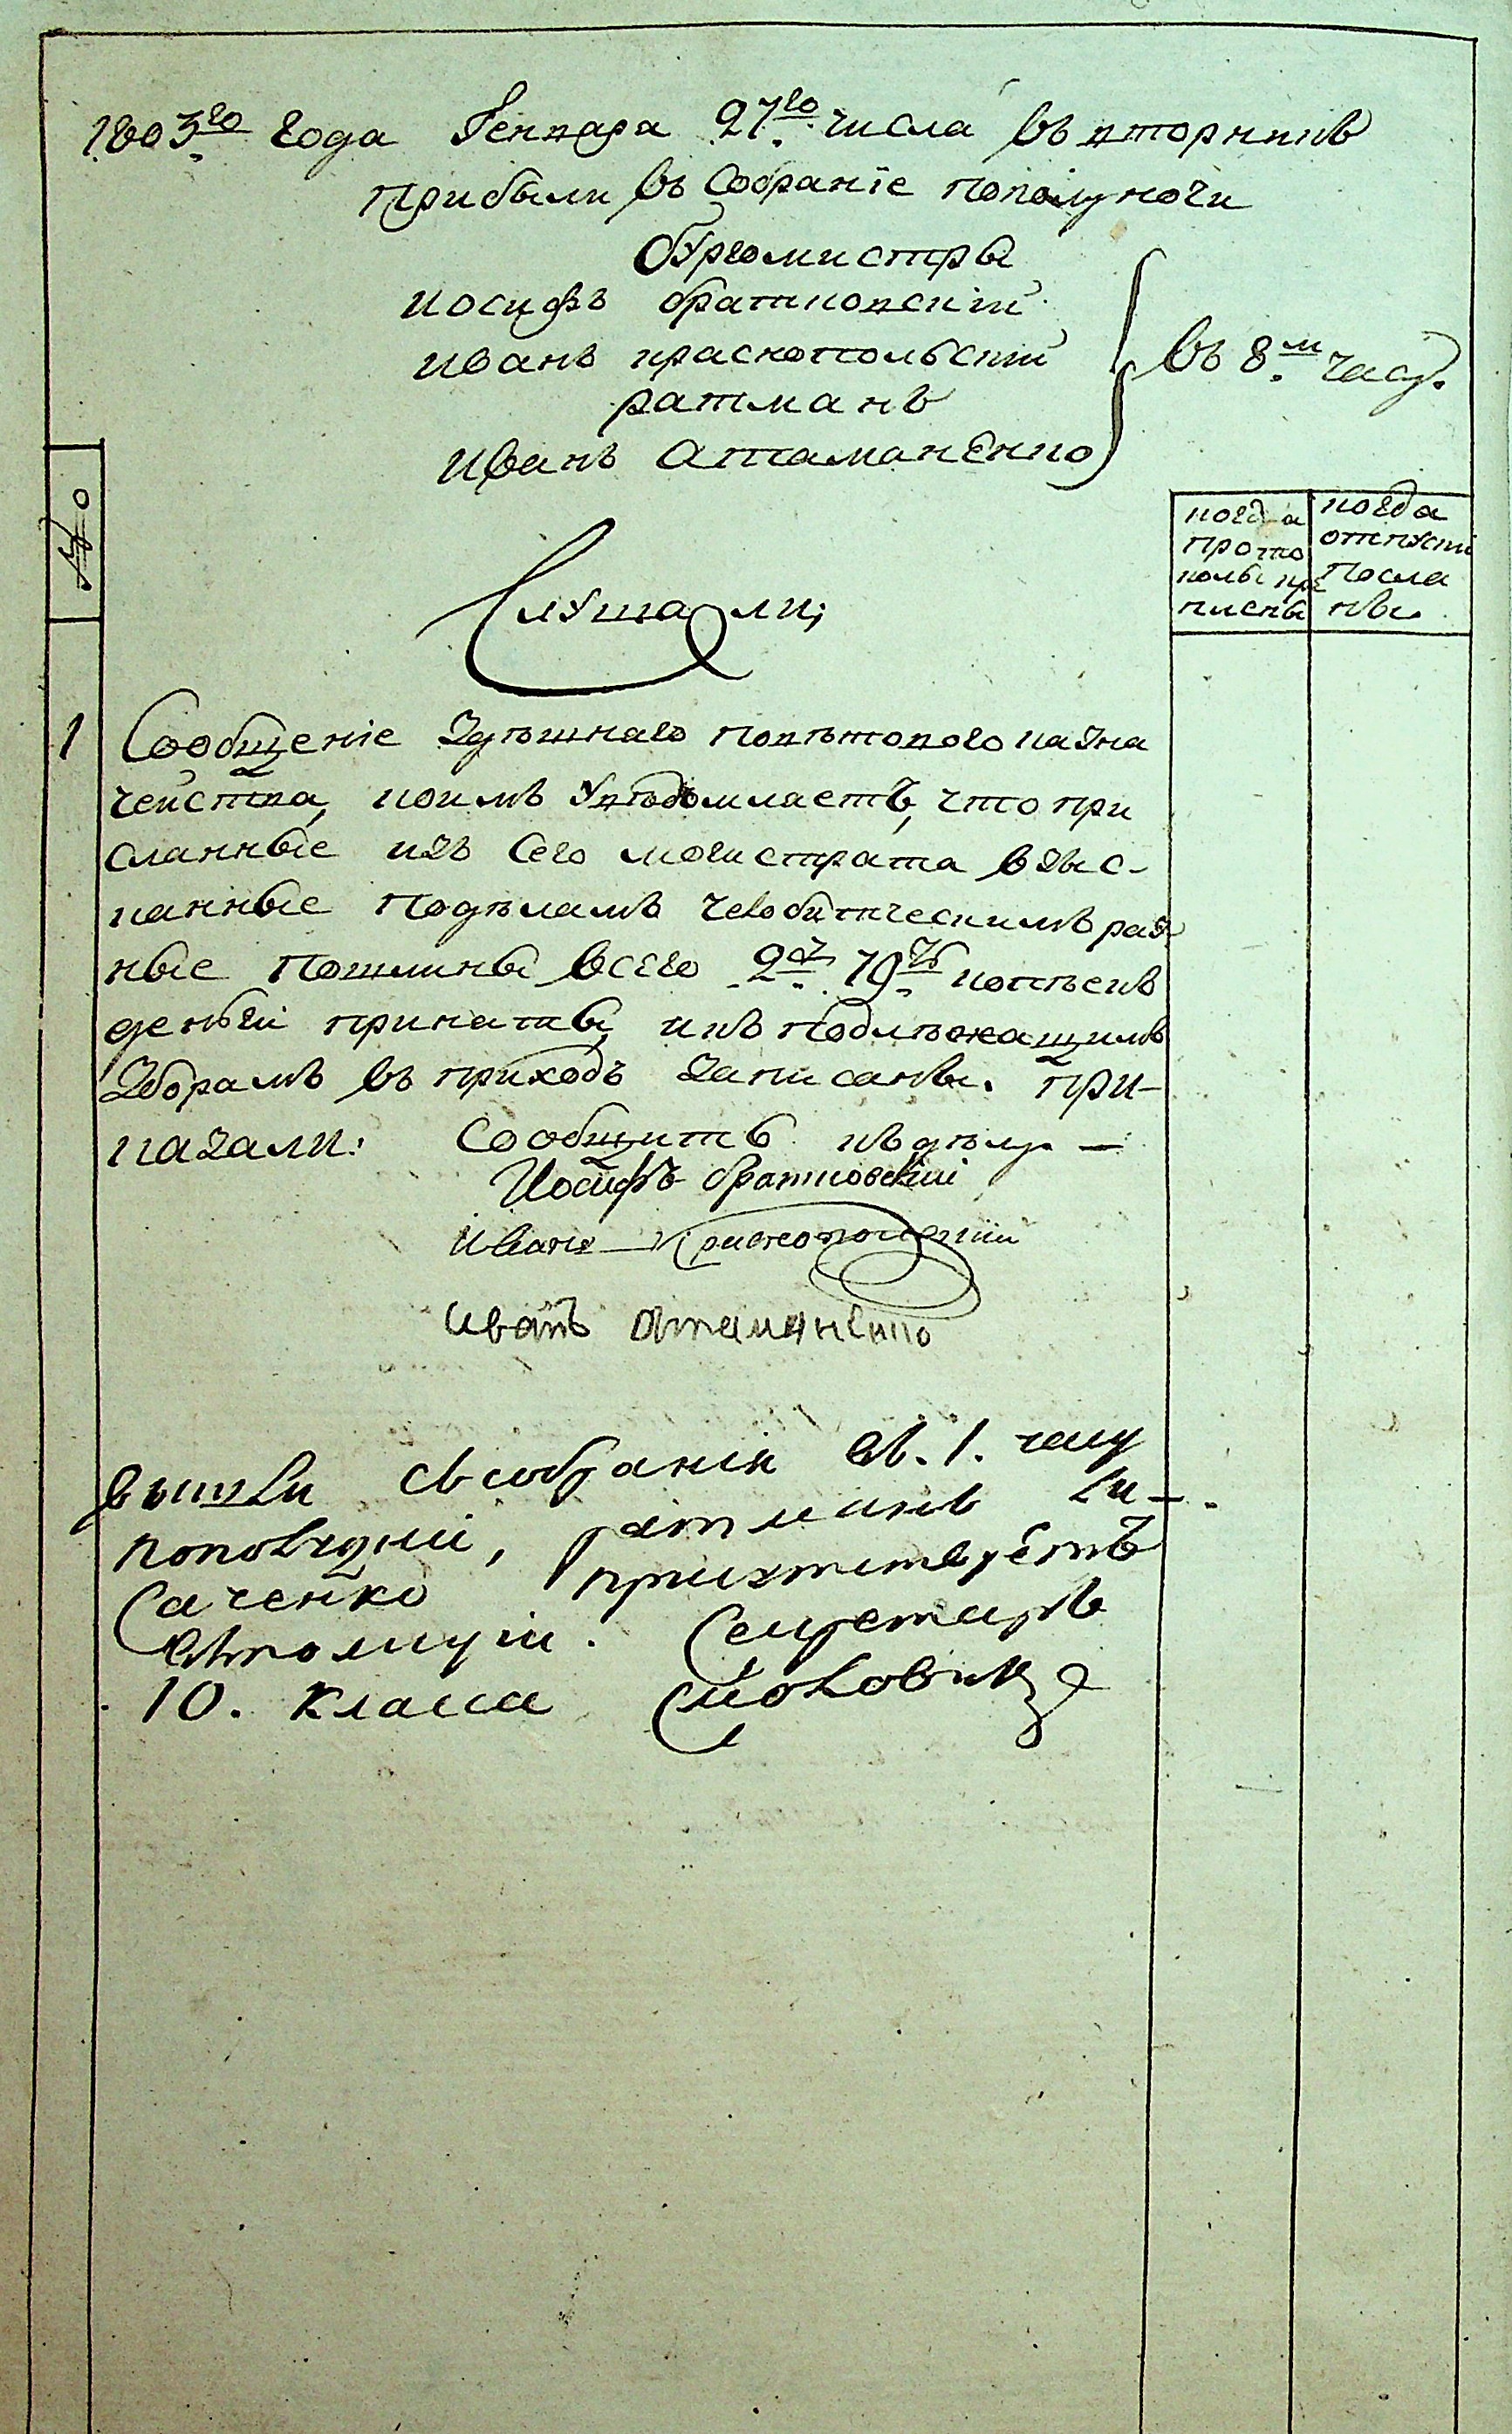 1803го года Генваря 27го числа въ вторникъ
прибыли въ Собраніе пополуночи
бургомистры
иосифъ братковскій
иванъ краснопольскій
ратманъ
иванъ Атаманенко
въ 8м часу.
№
когда
прото
колъ
писанъ
когда
отпуски
Посла
ны.
Слушали;
1
Сообщеніе Здѣшнаго повѣтового казна
чейства, коимъ Увѣдомляетъ, что при
сланные изъ Сего могистрата взыс-
канные Подѣламъ челобитческимъ раз
ные Пошлины всего 2 р 79 копѣекъ
денги приняты, икъ Подлѣжащимъ
Зборамъ въ приходъ Записаны. при-
казали: Сообщить къ дѣлу. —
Иосифъ братковскій
Иванъ Краснопольскій
иванъ Атаманенко
вышли съ собранія въ. 1. часу
пополудни, ратманъ
Саченко
Секретарь
10. класа